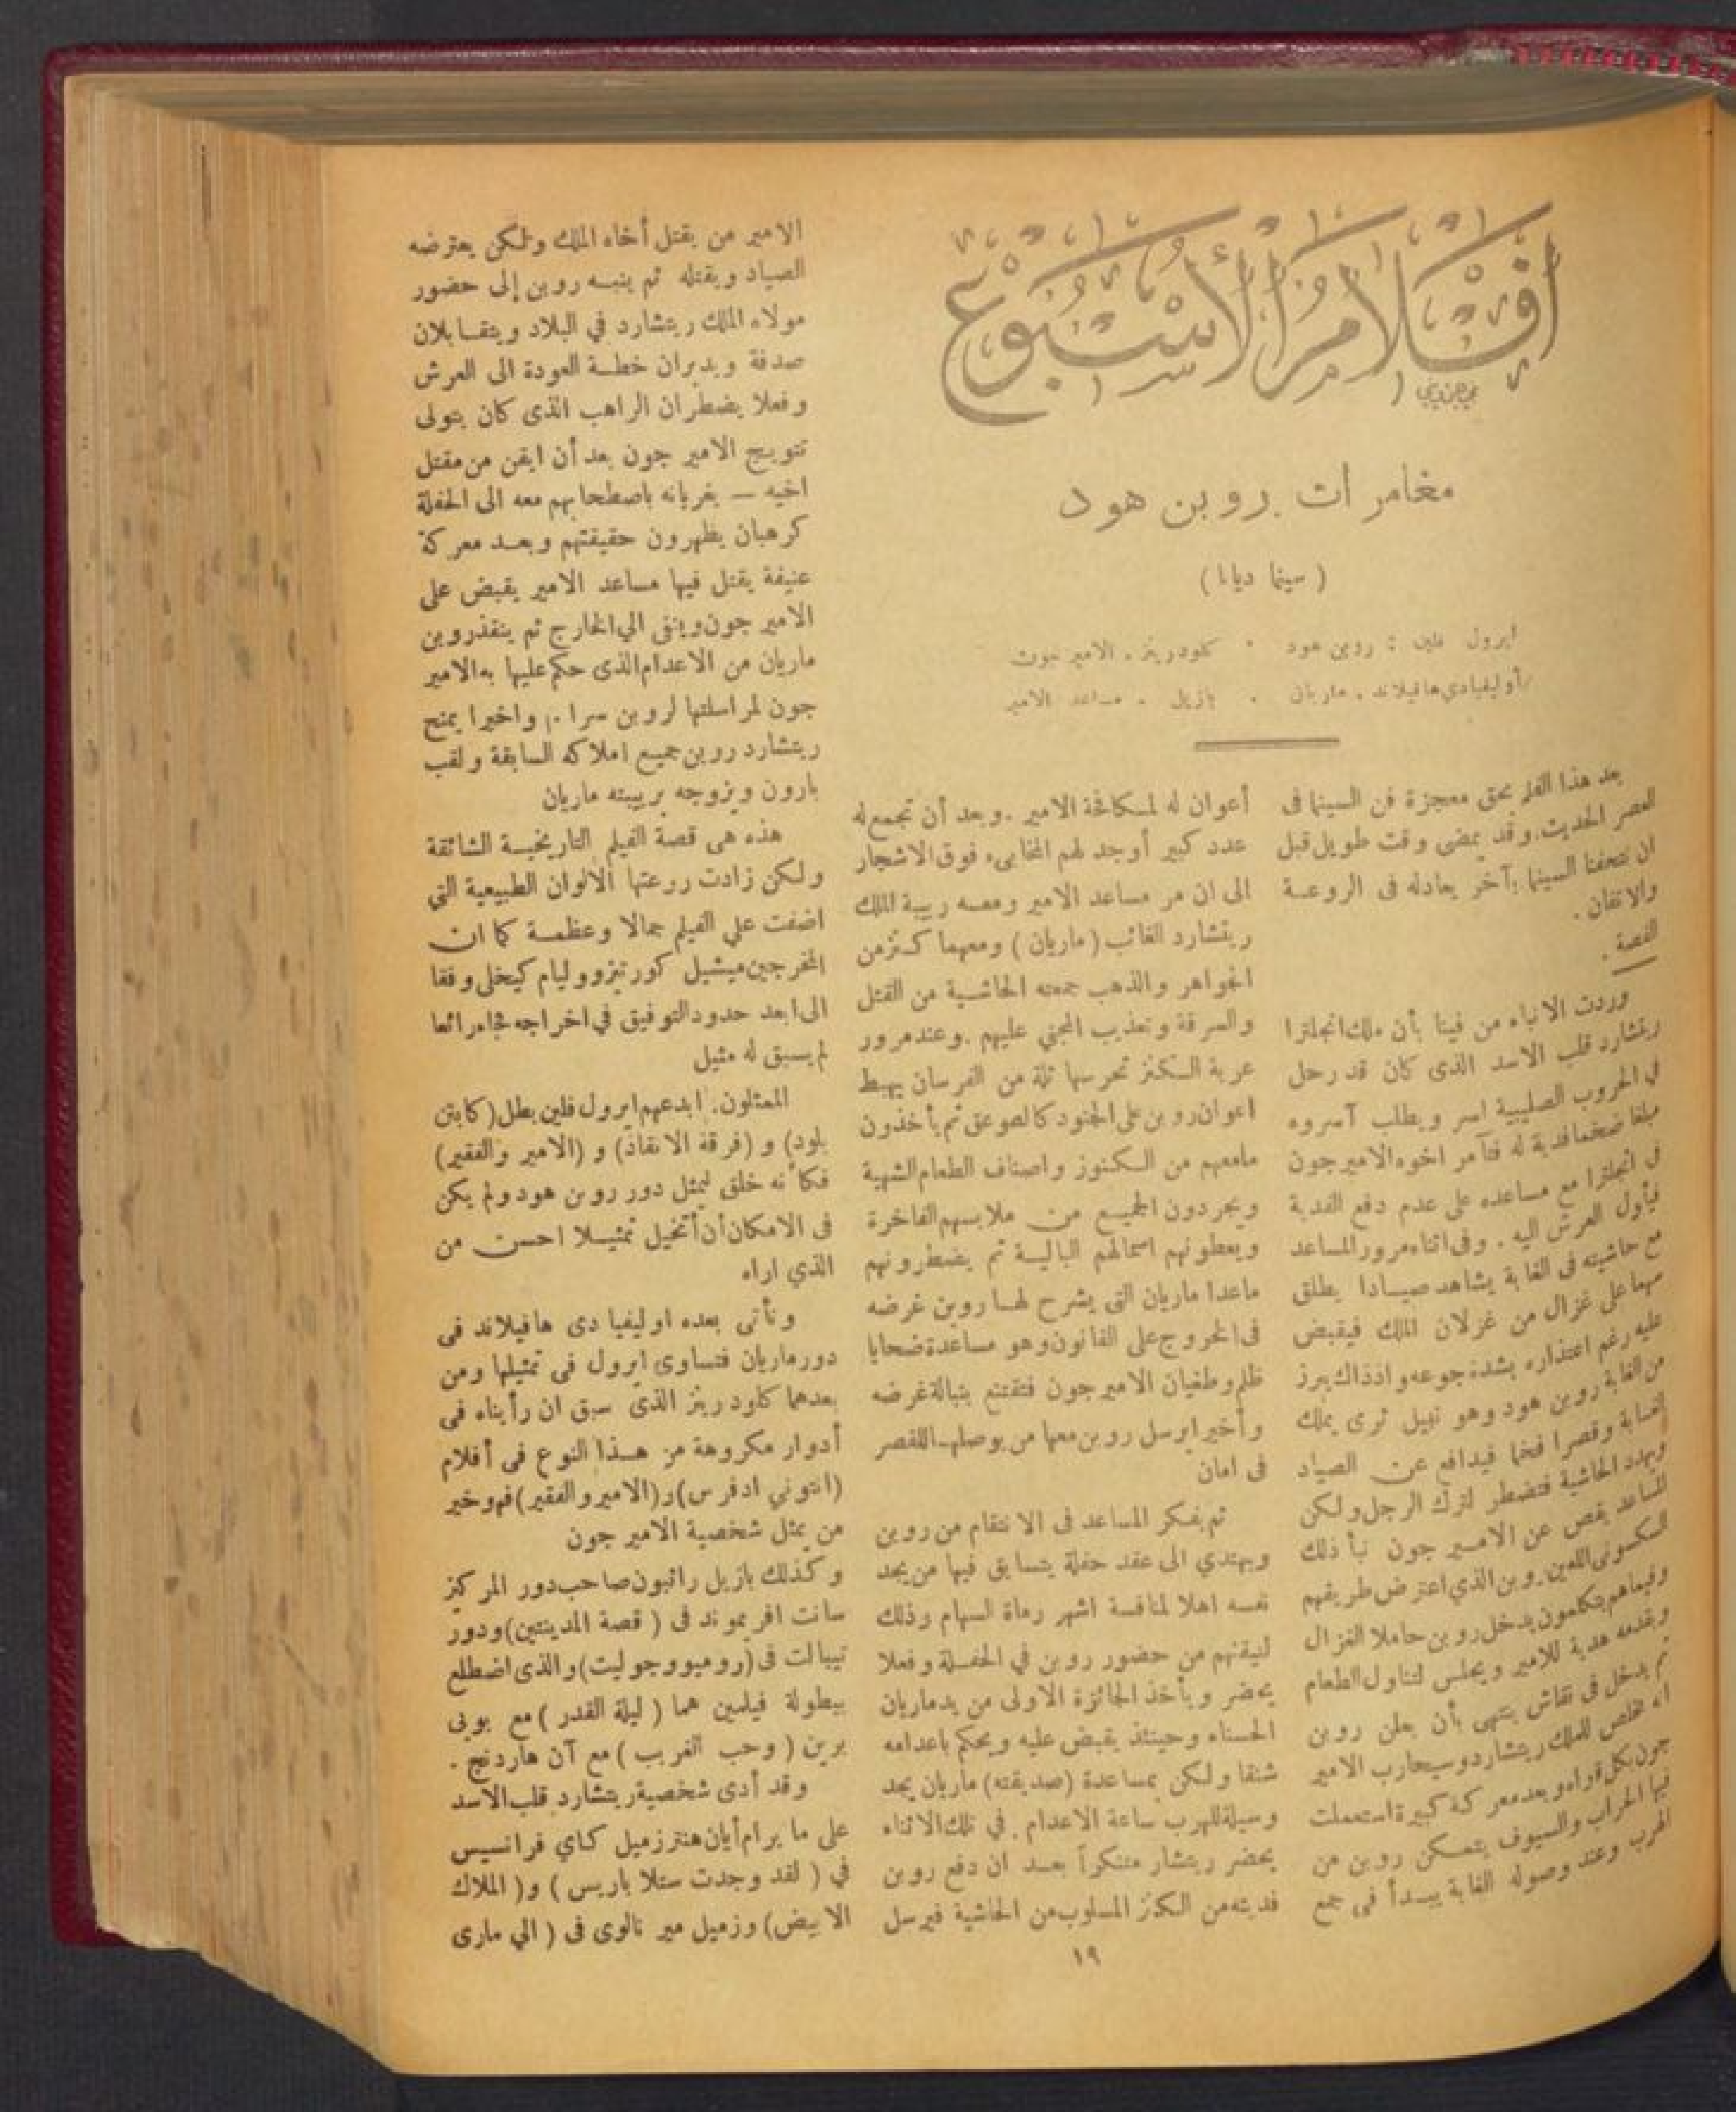 أفلام الأسبوع
مغامرات روبن هود
( سينما ديانا )
ايرول فلين : روبن هود · كلودرينز . الامير جون
أوليفيادي هافيلاند . ماريان . بازيل . مساعد الامير
يعد هذا الفلم بحق معجزة فن السينما فى
العصر الحديث. وقد يمضى وقت طويل قبل
ان تتحفنا السينما بآخر يعادله فى الروعــة
والاتقان .
القصة .
وردت الانباء من فينا بأن ملك انجلترا
ريتشارد قلب الاسد الذى كان قد رحل
في الحروب الصليبية اسر ويطلب آسروه
مبلغا ضخما فدية له فتآمر اخوه الامير جون
فى انجلترا مع مساعده على عدم دفع الفدية
فيأول العرش اليه . وفى اثناء مرور المساعد
مع حاشيته فى الغابة يشاهد صيــادا يطلق
سهما على غزال من غزلان الملك فيقبض
عليه رغم اعتذاره بشدة جوعه واذذاك يبرز
من الغابة روبن هود وهو نبيل ثرى يملك
وقصرا فخما فيدافع عن الصياد
ويهدد الحاشية فتضطر لترك الرجل ولكن
المساعد يقص عن الامــير جون نبأ ذلك
السكسونى اللعين روبن الذي اعترض طريقهم
وفيماهم يتكلمون يدخل روبن حاملا الغزال
ويقدمه هدية للامير ويجلس لتناول الطعام
ثم يدخل فى نقاش ينتهى بأن يعلن روبن
انه مخلص للملك ريتشارد وسيحارب الامير
جون بكل قواه وبعد معركة كبيرة استعملت
فيها الحراب والسيوف يتمــكن روبن من
الهرب وعند وصوله الغابة يبــدأ فى جمع
أعوان له لمكافحة الامير . وبعد أن تجمع له
عدد كبير أوجد لهم المخابىء فوق الاشجار
الى ان مر مساعد الامير ومعــه ربيبة الملك
ريتشارد الغائب ( ماريان ) ومعهما كــنز من
الجواهر والذهب جمعته الحاشــية من القتل
والسرقة وتعذيب المجني عليهم . وعند مرور
عربة الــكنز تحرسها ثلة من الفرسان يهبط
اعوان روبن على الجنود كالصوعق ثم يأخذون
مامعهم من الــكنوز واصناف الطعام الشهية
ويجردون الجميــع من ملابسهم الفاخرة
ويعطونهم اسمالهم الباليــة ثم يضطرونهم
ماعدا ماريان التى يشرح لهــا روبن غرضه
فى الخروج على القانون وهو مساعدة ضحايا
ظلم وطغيان الامير جون فتقتنع بنبالة غرضه
وأخيرا يرسل روبن معها من يوصلهــا للقصر
فى امان
ثم يفكر المساعد فى الانتقام من روبن
ويهتدي الى عقد حفلة يتسابق فيها من يجد
نفسه اهلا لمنافسة اشهر رماة السهام وذلك
ليقنهم من حضور روبن في الحفــلة وفعلا
يحضر ويأخذ الجائزة الاولى من يد ماريان
الحسناء وحينئذ يقبض عليه ويحكم باعدامه
شنقا ولكن بمساعدة (صديقته) ماريان يجد
وسيلة للهرب ساعة الاعدام . في تلك الاثناء
يحضر ريتشار متنكراً بعــد ان دفع روبن
فديته من الــكنز المسلوب من الحاشية فيرسل
الامير من يقتل أخاه الملك ولــكن يعترضه
الصياد ويقتله ثم ينبــه روبن إلى حضور
مولاه الملك ريتشارد في البلاد ويتقــابلان
صدفة ويدبران خطــة العودة الى العرش
وفعلا يضطران الراهب الذى كان يتولى
تتويج الامير جون بعد أن ايقن من مقتل
اخيه — يغريانه باصطحابهم معه الى الحفلة
كرهبان يظهرون حقيقتهم وبعــد معركة
عنيفة يقتل فيها مساعد الامير يقبض على
الامير جون وينفى الي الخارج ثم ينقذ روبن
ماريان من الاعدام الذى حكم عليها به الامير
جون لمراسلتها لروبن سرا .، واخيرا يمنح
ريتشارد روبن جميع املاكه السابقة ولقب
بارون ويزوجه بربيبته ماريان
هذه هى قصة الفيلم التاريخيــة الشائقة
ولكن زادت روعتها الالوان الطبيعية التي
اضفت علي الفيلم جمالا وعظمــة كما ان
المخرجين ميشيل كورتيز ووليام كيغلى وفقا
الى ابعد حدود التوفيق في اخراجه فجاء رائعا
لم يسبق له مثيل
الممثلون . ابدعهم ايرول فلين بطل ( كابتن
بلود) و ( فرقة الانقاذ) و (الامير والفقير)
فكأنه خلق ليمثل دور روبن هود ولم يكن
فى الامكان أن أتخيل تمثيــلا احسن من
الذي اراه
وتأتى بعده اوليفيا دى هافيلاند فى
دور ماريان فتساوى ايرول فى تمثيلها ومن
بعدهما كلود رينز الذى سبق ان رأيناه فى
أدوار مكروهة من هــذا النوع فى أفلام
(انتوني ادفرس) و (الامير والفقير) فهو خير
من يمثل شخصية الامير جون
وكذلك بازيل راثبون صاحب دور المركيز
سانت افريموند فى ( قصة المدينتين) ودور
تيبالت فى (روميو وجوليت) والذى اضطلع
ببطولة فيلمين هما ( ليلة القدر ) مع بوبى
برين ( وحب الغريب ) مع آن هاردنج .
وقد أدى شخصية ريتشارد قلب الاسد
على ما يرام أيان هنتر زميل كــاي فرانسيس
في ( لقد وجدت ستلا باريس ) و ( الملاك
الابيض) وزميل مير نالوى فى ( الي مارى
١٩